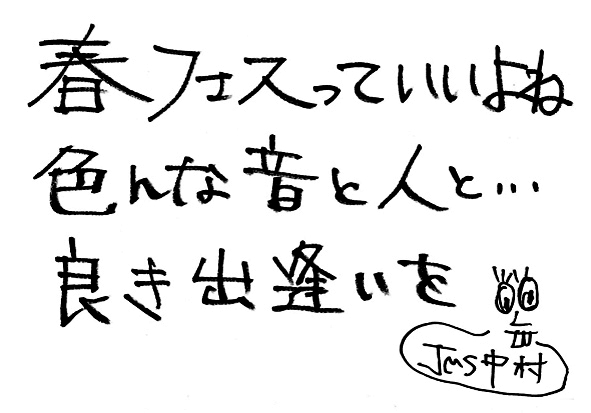 春フェスっていいよね
色んな音と人と…
良き出逢いを
JMS中村